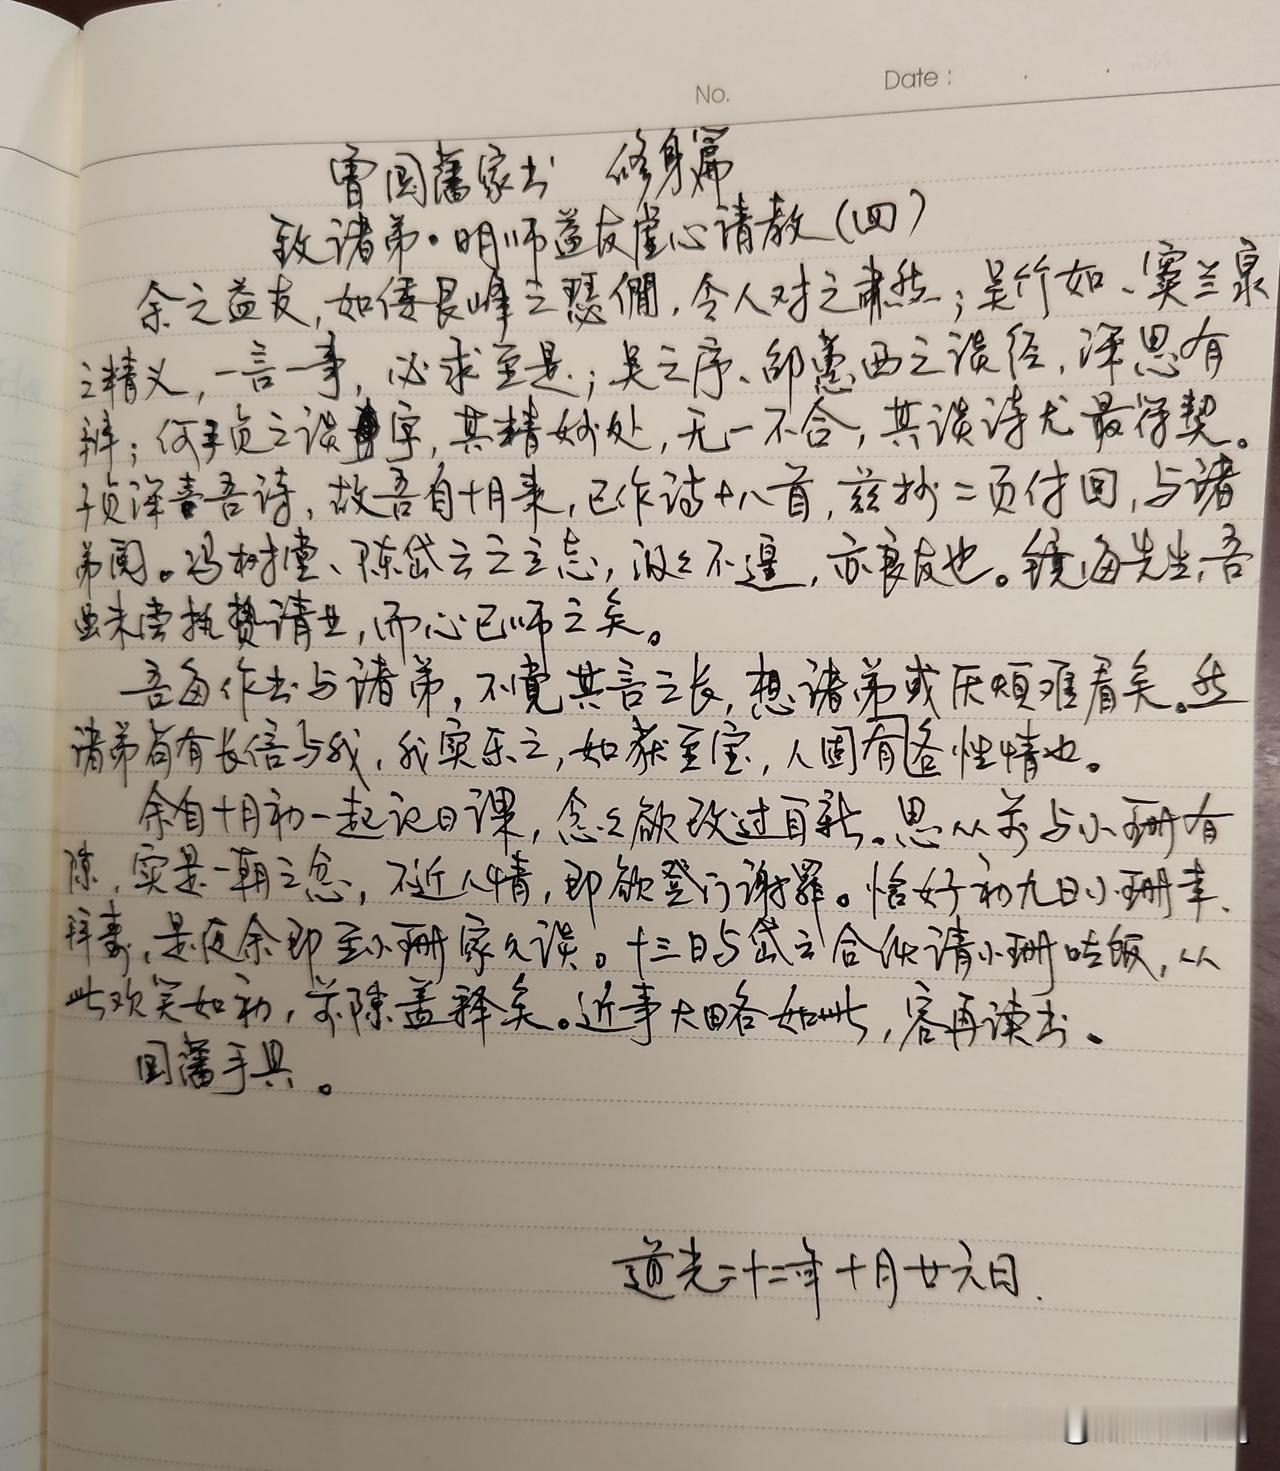 No. Date:
曾国藩家书 修身篇
致诸弟·明师益友虚心请教(四)
余之益友,如倭艮峰之瑟僩,令人对之肃然;吴竹如、窦兰泉
之精义,一言一事,必求至是;吴之序、邵蕙西之谈经,深思有
辨;何子贞之谈字,其精妙处,无一不合,其谈诗尤最符契。
子贞深喜吾诗,故吾自十月来,已作诗十八首,兹抄二页付回,与诸
弟阅。冯树堂、陈岱云之立志,汲汲不遑,亦良友也。镜海先生,吾
虽未尝执贽请业,而心已师之矣。
吾每作书与诸弟,不觉其言之长,想诸弟或厌烦难看矣。然
诸弟苟有长信与我,我实乐之,如获至宝,人固有各性情也。
余自十月初一起记日课,念念欲改过自新。思从前与小珊有
隙,实是一朝之忿,不近人情,即欲登门谢罪。恰好初九日小珊来
拜寿,是夜余即至小珊家久谈。十三日与岱云合伙请小珊吃饭,从
此欢笑如初,前隙盖释矣。近事大略如此,容再读书。
国藩手具。
道光二十二年十月廿六日.